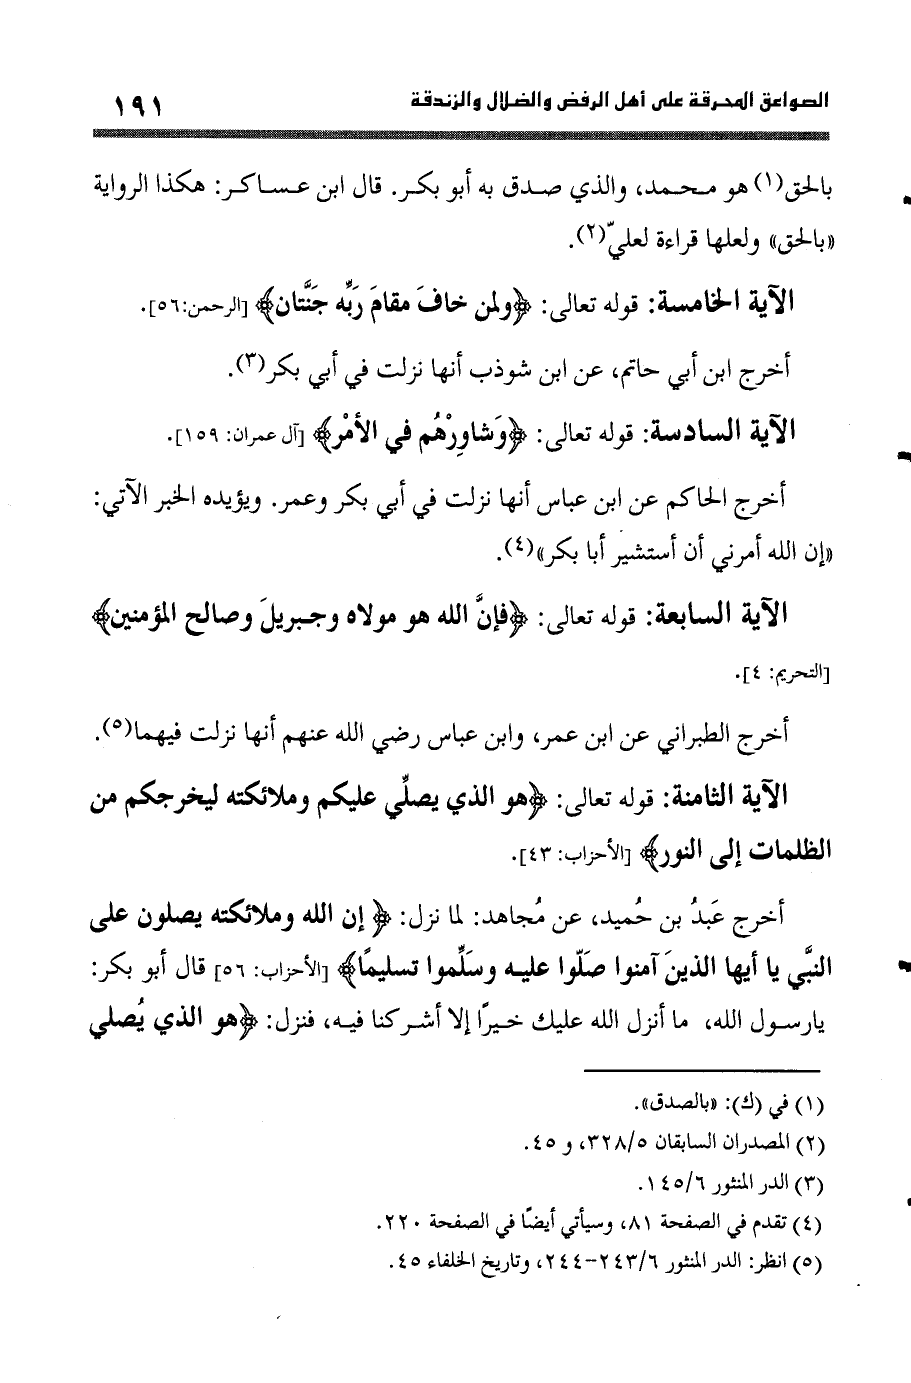 الصواعق المحرقة على أهل الرفض والضلال والزندقة ١٩١
بالحق(١) هو محمد، والذي صدق به أبو بكر. قال ابن عساكر: هكذا الرواية
«بالحق» ولعلها قراءة لعليّ(٢).
الآية الخامسة: قوله تعالى: ﴿ولمن خافَ مقامَ رَبِّه جَنَّتان﴾ [الرحمن:٥٦].
أخرج ابن أبي حاتم، عن ابن شوذب أنها نزلت في أبي بكر(٣).
الآية السادسة: قوله تعالى: ﴿وَشاوِرْهُم في الأمْر﴾ [آل عمران: ١٥٩].
أخرج الحاكم عن ابن عباس أنها نزلت في أبي بكر وعمر. ويؤيده الخبر الآتي:
«إن الله أمرني أن أستشير أبا بكر»(٤).
الآية السابعة: قوله تعالى: ﴿فإنَّ الله هو مولاه وجبريلَ وصالح المؤمنين﴾
[التحريم: ٤].
أخرج الطبراني عن ابن عمر، وابن عباس رضي الله عنهم أنها نزلت فيهما(٥).
الآية الثامنة: قوله تعالى: ﴿هو الذي يصلِّي عليكم وملائكته ليخرجكم من
الظلمات إلى النور﴾ [الأحزاب: ٤٣].
أخرج عَبدُ بن حُميد، عن مُجاهد: لما نزل: ﴿إن الله وملائكته يصلون على
النبَّي يا أيها الذينَ آمنوا صَلّوا عليه وسَلِّموا تسليمًا﴾ [الأحزاب: ٥٦] قال أبو بكر:
يارسول الله، ما أنزل الله عليك خيرًا إلا أشركنا فيه، فنزل: ﴿هو الذي يُصلي
(١) في (ك): «بالصدق».
(٢) المصدران السابقان ٣٢٨/٥، و ٤٥.
(٣) الدر المنثور ١٤٥/٦.
(٤) تقدم في الصفحة ٨١، وسيأتي أيضًا في الصفحة ٢٢٠.
(٥) انظر: الدر المنثور ٢٤٣/٦-٢٤٤، وتاريخ الخلفاء ٤٥.